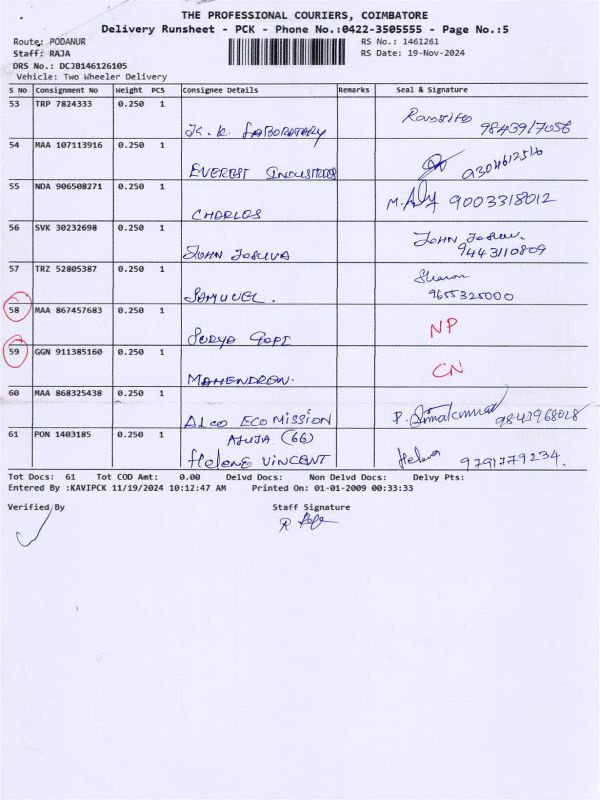 THE PROFESSIONAL COURIERS, COIMBATORE
Delivery Runsheet - PCK - Phone No.:0422-3505555 - Page No.:5
Route: PODANUR RS No.: 1461261
Staff: RAJA RS Date: 19-Nov-2024
DRS No.: DCJB146126105
Vehicle: Two Wheeler Delivery
S No Consignment No Weight PCS Consignee Details Remarks Seal & Signature
53 TRP 7824333 0.250 1
K.K LABORATARY 9843917056
54 MAA 107113916 0.250 1
EVEREST INDUSTRIES
55 NDA 906508271 0.250 1
CHARLES 9003318012
56 SVK 30232698 0.250 1 JOHN
JOHN JOSUVA 9443110809
57 TRZ 52805387 0.250 1 Sharon
SAMUVEL. 9655325000
58 MAA 867457683 0.250 1
SURYA GOPI NP
59 GGN 911385160 0.250 1
MAHENDREN. CN
60 MAA 868325438 0.250 1
ALCO ECO MISSION 9843968028
61 PON 1403185 0.250 1 (66)
Helene VINCENT Helena 9791779234.
Tot Docs: 61 Tot COD Amt: 0.00 Delvd Docs: Non Delvd Docs: Delvy Pts:
Entered By :KAVIPCK 11/19/2024 10:12:47 AM Printed On: 01-01-2009 00:33:33
Verified By Staff Signature